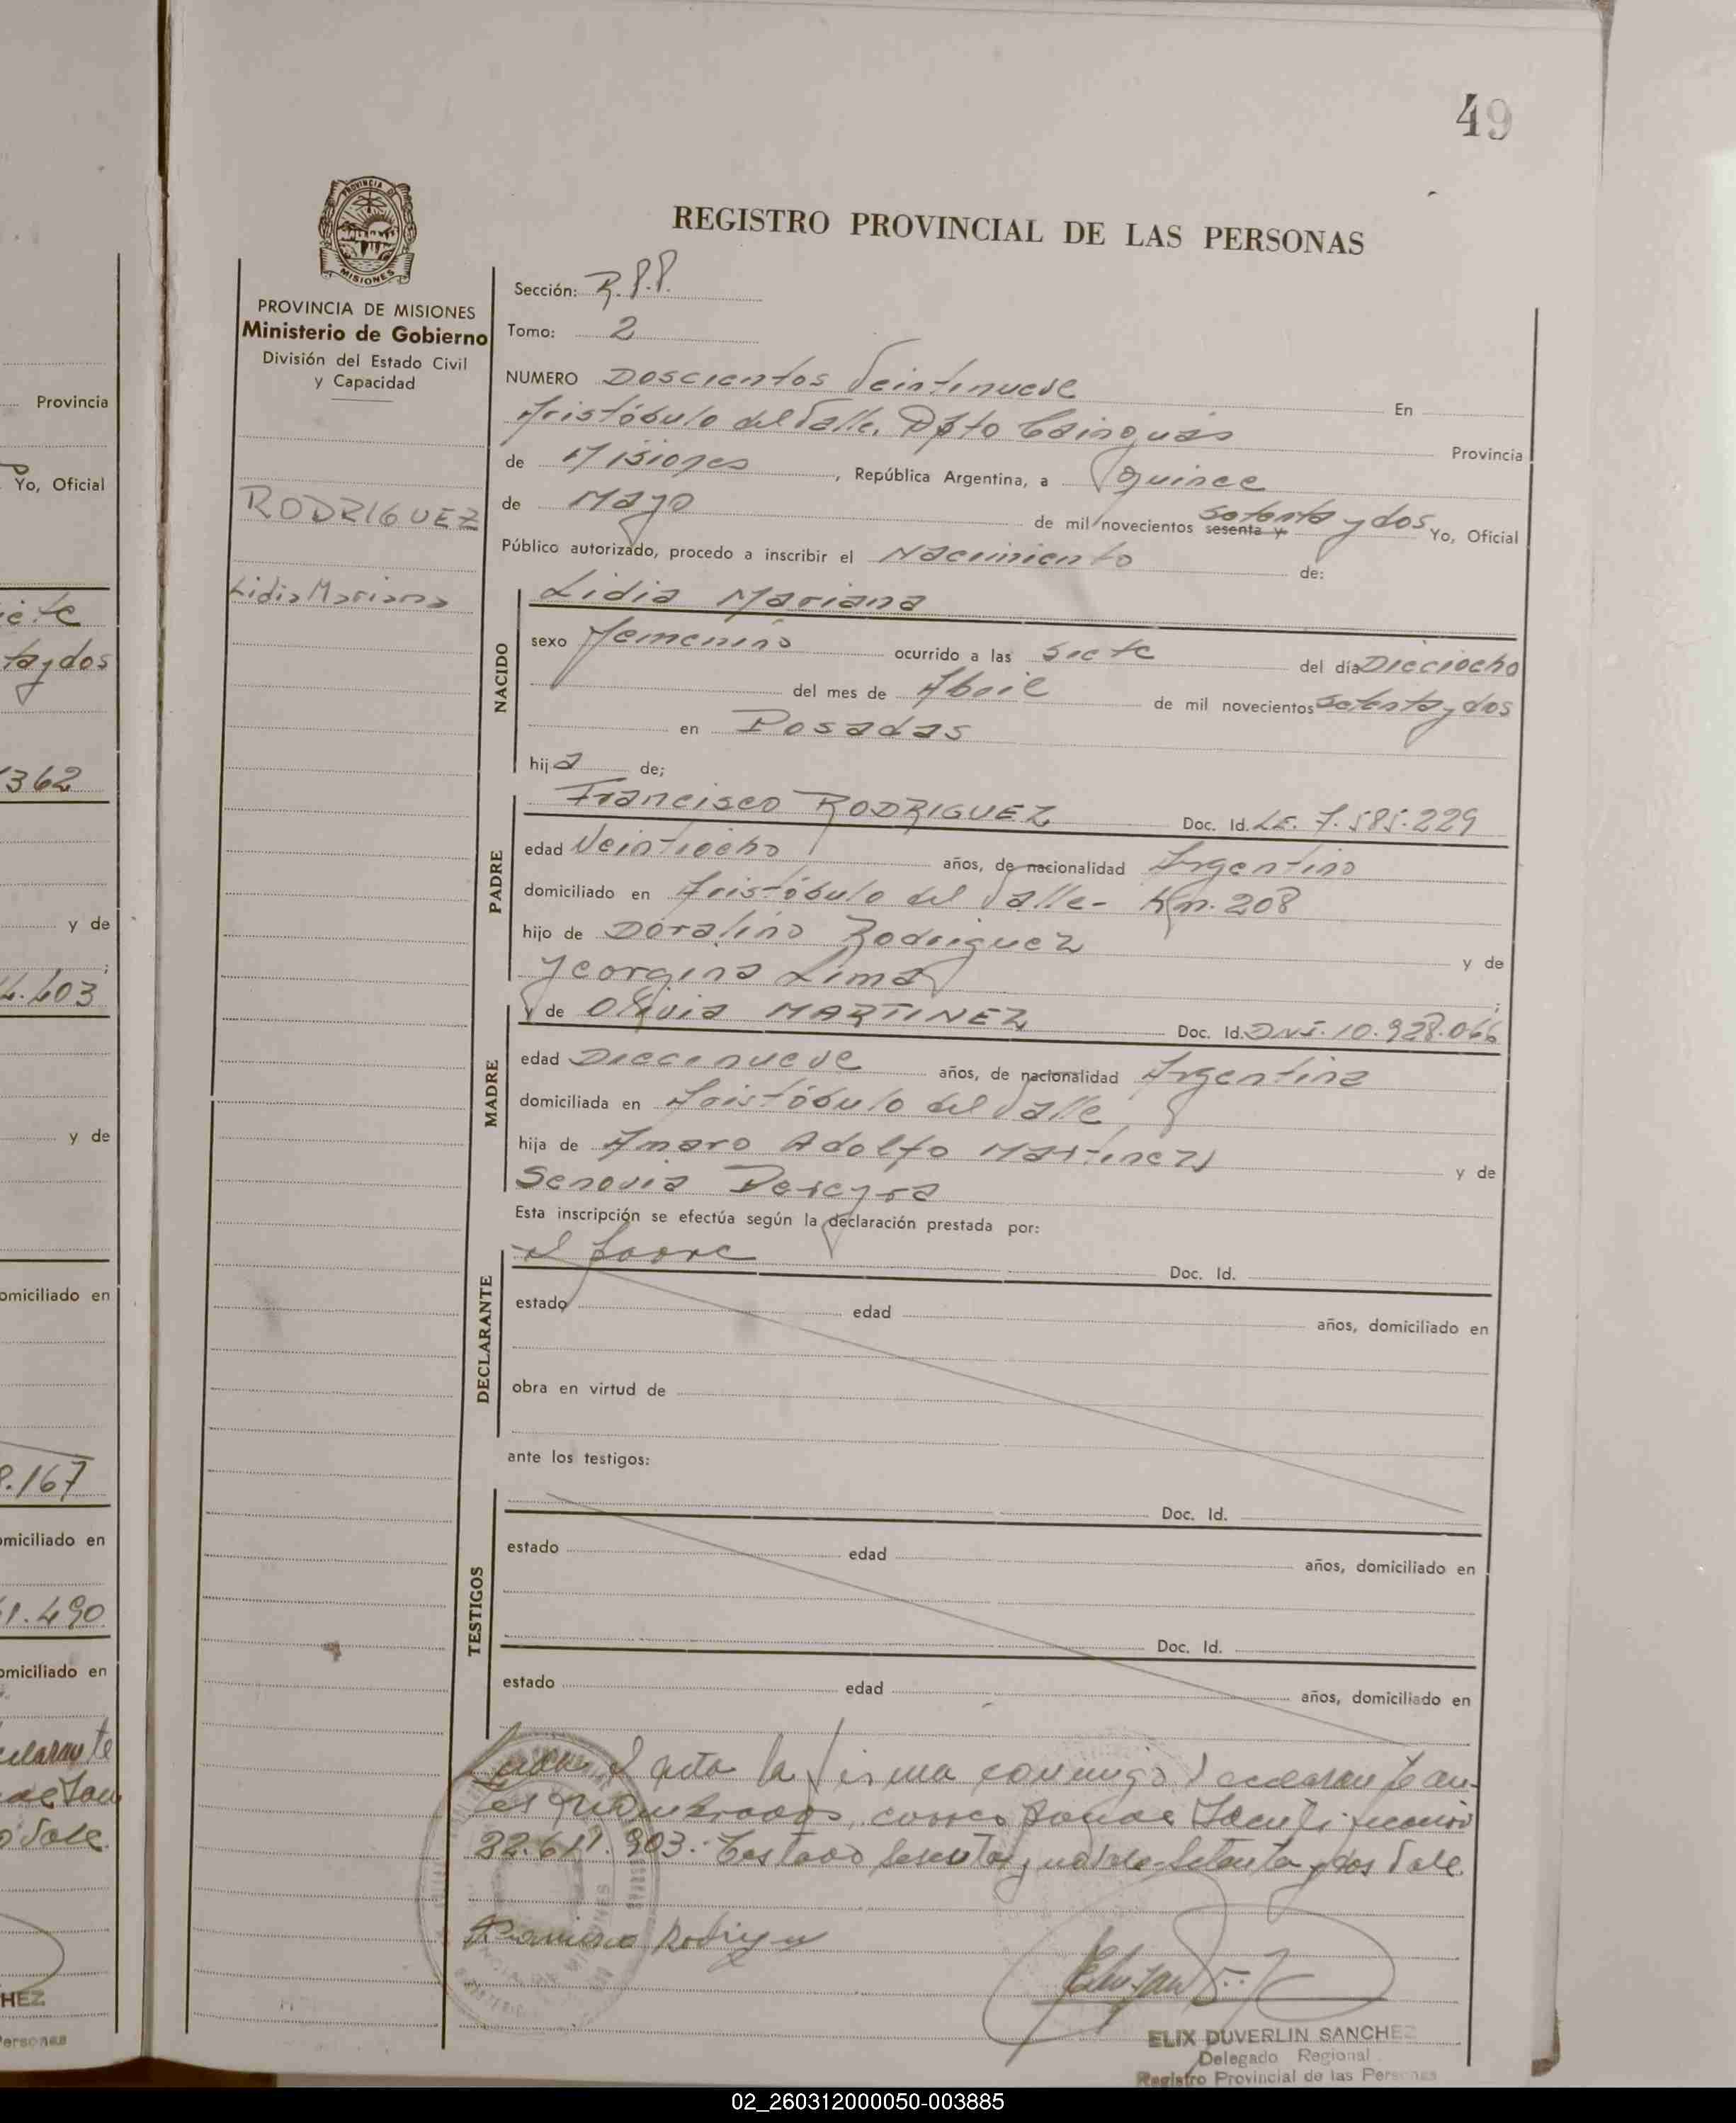 49
PROVINCIA DE
MISIONES
REGISTRO PROVINCIAL DE LAS PERSONAS
PROVINCIA DE MISIONES
Ministerio de Gobierno
División del Estado Civil
y Capacidad
RODRIGUEZ
Lidia Mariana
Sección: R.P.P.
Tomo: 2
NUMERO Doscientos Veintinueve En
Aristóbulo del Valle. Dpto Cainguás Provincia
de Misiones, República Argentina, a quince
de Mayo de mil novecientos sesenta y setenta y dos Yo, Oficial
Público autorizado, procedo a inscribir el Nacimiento de:
NACIDO
Lidia Mariana
sexo femenino ocurrido a las siete del día Dieciocho
del mes de Abril de mil novecientos setenta y dos
en Posadas
hija de;
PADRE
Francisco RODRIGUEZ Doc. Id. LE. 7.585.229
edad Veintiocho años, de nacionalidad Argentino
domiciliado en Aristóbulo del Valle- Km. 208
hijo de Doralino Rodriguez y de
Georgina Lima;
MADRE
y de Olivia MARTINEZ Doc. Id. DNI. 10.928.066
edad Diecenueve años, de nacionalidad Argentina
domiciliada en Aristóbulo del Valle
hija de Amaro Adolfo Martinez y de
Senovia Pereyra
Esta inscripción se efectúa según la declaración prestada por:
DECLARANTE
el padre Doc. Id.
estado edad años, domiciliado en
obra en virtud de
ante los testigos:
TESTIGOS
Doc. Id.
estado edad años, domiciliado en
Doc. Id.
estado edad años, domiciliado en
Leida el acta la firma conmigo el declarante an-
tes nombrado, corresponde Identificación
22.611.903.- Testado sesenta y no vale- Setenta y dos Vale.
Francisco Rodriguez
ELIX DUVERLIN SANCHEZ
Delegado Regional
Registro Provincial de las Personas
Provincia
Yo, Oficial
tay dos
362
y de
4.403
y de
omiciliado en
8.167
omiciliado en
1.490
omiciliado en
Vale.
HEZ
Personas
02_260312000050-003885